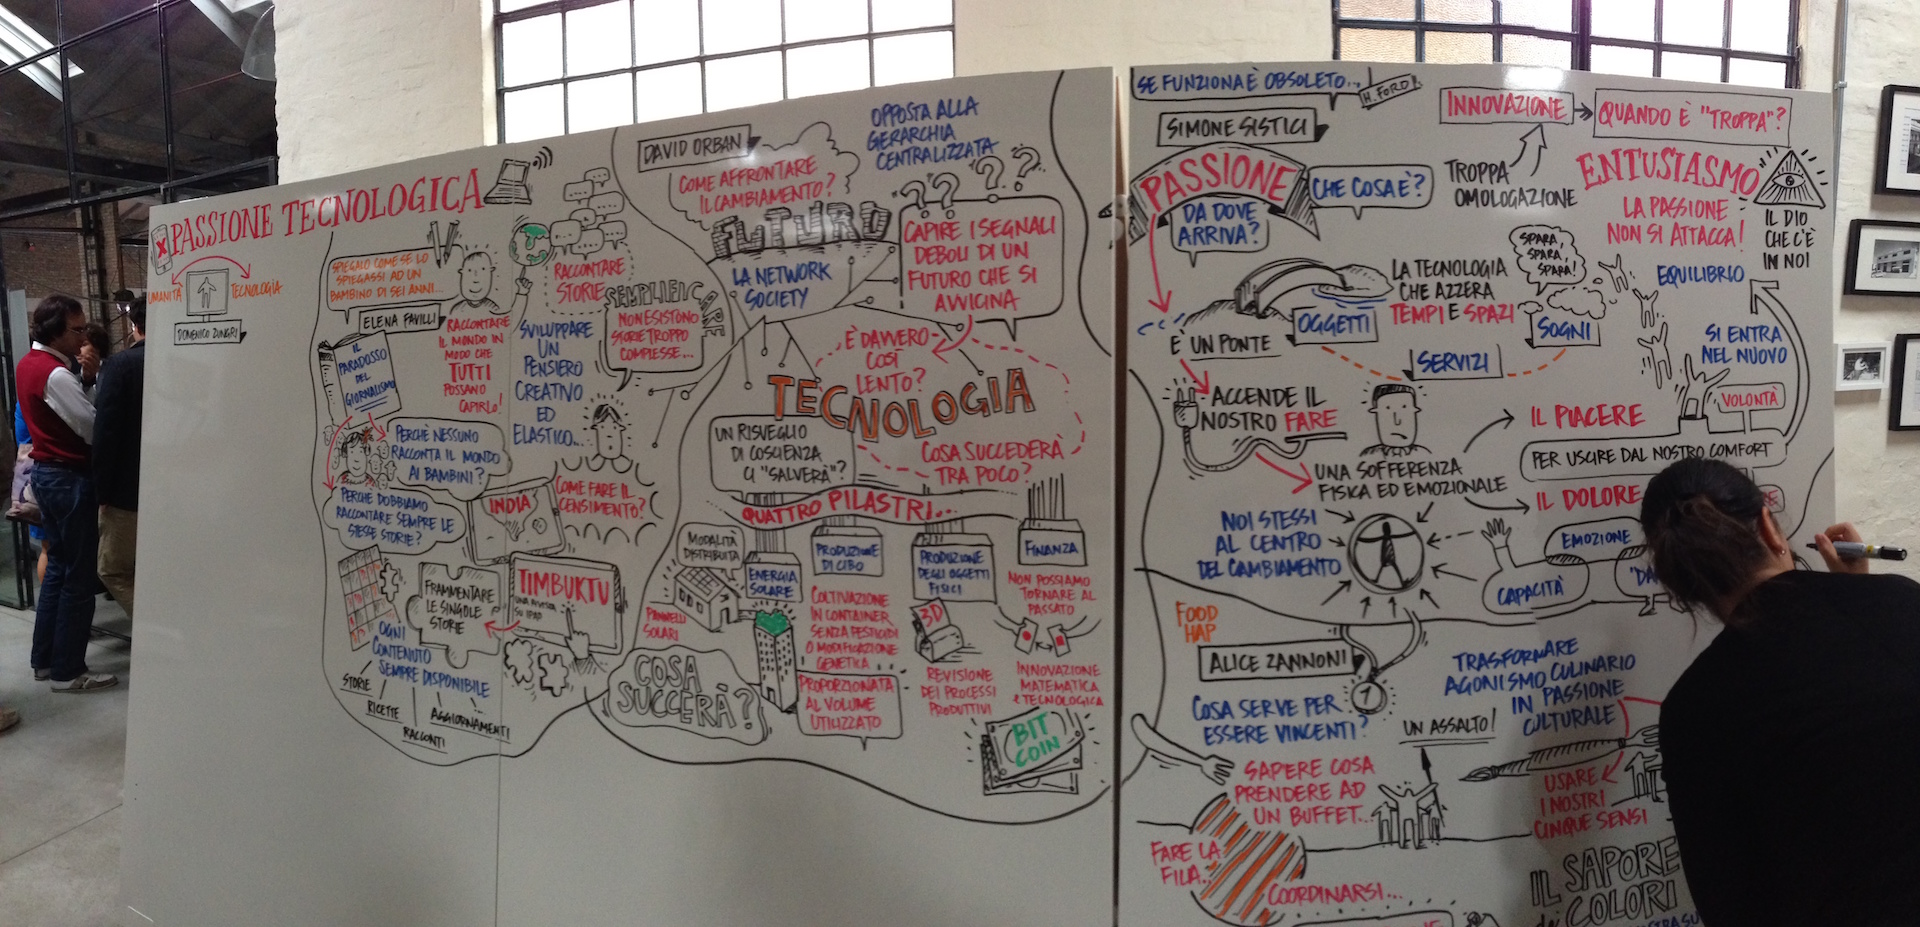 PASSIONE TECNOLOGICA
UMANITÀ
TECNOLOGIA
DOMENICO ZUNGRI
SPIEGALO COME SE LO
SPIEGASSI AD UN
BAMBINO DI SEI ANNI...
ELENA FAVILLI
IL
PARADOSSO
DEL
GIORNALISMO
RACCONTARE
IL MONDO IN
MODO CHE
TUTTI
POSSANO
CAPIRLO!
RACCONTARE
STORIE
SVILUPPARE
UN
PENSIERO
CREATIVO
ED
ELASTICO...
SEMPLIFICARE
NON ESISTONO
STORIE TROPPO
COMPLESSE...
PERCHÈ NESSUNO
RACCONTA IL MONDO
AI BAMBINI?
PERCHE DOBBIAMO
RACCONTARE SEMPRE LE
STESSE STORIE?
INDIA
COME FARE IL
CENSIMENTO?
FRAMMENTARE
LE SINGOLE
STORIE
TIMBUKTU
UNA RIVISTA
SU IPAD
OGNI
CONTENUTO
SEMPRE DISPONIBILE
STORIE
RICETTE
RACCONTI
AGGIORNAMENTI
DAVID ORBAN
COME AFFRONTARE
IL CAMBIAMENTO?
FUTURO
LA NETWORK
SOCIETY
OPPOSTA ALLA
GERARCHIA
CENTRALIZZATA
????
CAPIRE I SEGNALI
DEBOLI DI UN
FUTURO CHE SI
AVVICINA
È DAVVERO
COSÌ
LENTO?
TECNOLOGIA
UN RISVEGLIO
DI COSCIENZA
CI "SALVERÀ"?
COSA SUCCEDERÀ
TRA POCO?
QUATTRO PILASTRI...
MODALITÀ
DISTRIBUITA
ENERGIA
SOLARE
PANNELLI
SOLARI
PRODUZIONE
DI CIBO
COLTIVAZIONE
IN CONTAINER
SENZA PESTICIDI
O MODIFICAZIONE
GENETICA
PROPORZIONATA
AL VOLUME
UTILIZZATO
PRODUZIONE
DEGLI OGGETTI
FISICI
3D
REVISIONE
DEI PROCESSI
PRODUTTIVI
FINANZA
NON POSSIAMO
TORNARE AL
PASSATO
INNOVAZIONE
MATEMATICA
E TECNOLOGICA
BIT
COIN
COSA
SUCCERÀ?
SE FUNZIONA È OBSOLETO...
H. FORD
SIMONE SISTICI
PASSIONE
CHE COSA È?
DA DOVE
ARRIVA?
INNOVAZIONE
QUANDO È "TROPPA"?
TROPPA
OMOLOGAZIONE
ENTUSIASMO
LA PASSIONE
NON SI ATTACCA!
IL DIO
CHE C'È
IN NOI
EQUILIBRIO
SI ENTRA
NEL NUOVO
È UN PONTE
OGGETTI
LA TECNOLOGIA
CHE AZZERA
TEMPI E SPAZI
SPARA,
SPARA,
SPARA!
SOGNI
SERVIZI
ACCENDE IL
NOSTRO FARE
UNA SOFFERENZA
FISICA ED EMOZIONALE
IL PIACERE
VOLONTÀ
PER USCIRE DAL NOSTRO COMFORT
IL DOLORE
NOI STESSI
AL CENTRO
DEL CAMBIAMENTO
EMOZIONE
CAPACITÀ
FOOD
HAP
ALICE ZANNONI
1
COSA SERVE PER
ESSERE VINCENTI?
UN ASSALTO!
TRASFORMARE
AGONISMO CULINARIO
IN PASSIONE
CULTURALE
SAPERE COSA
PRENDERE AD
UN BUFFET...
USARE
I NOSTRI
CINQUE SENSI
FARE LA
FILA...
COORDINARSI...
IL SAPORE
dei COLORI